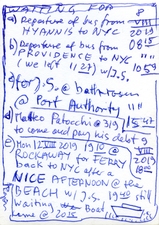 WAITING FOR
a) Departure of bus from 8
HYANNIS to NYC VIII 2019
b) Departure of bus from 08 15
PROVIDENCE to NYC "
(we left 1127) w/J.S. 10 59
c) for J.S. @ bathroom
@ Port Authority " "
d) Matteo Patocchi @ 319 15
to come and pay his debt 9
e) Mon 12 VIII 2019 19 @ VIII
ROCKAWAY for FERRY 2019
back to NYC after a
NICE AFTERNOON @ the
BEACH w/ J.S. 19 still
waiting Boat
came @ 2015